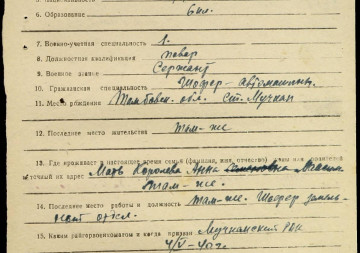 6. Образование 6 кл.
7. Военно-учетная специальность 1.
8. Должностная квалификация повар
9. Военное звание Сержант
10. Гражданская специальность Шофер-автомашины.
11. Место рождения Тамбовск. обл. ст. Мучкап
12. Последнее место жительства там-же
13. Где проживает в настоящее время семья (фамилия, имя, отчество) жены или родителей
и точный их адрес Мать Королева Анна
там-же.
14. Последнее место работы и должность там-же. Шофер
отдел.
15. Каким райгорвоенкоматом и когда призван Мучкапский РВК